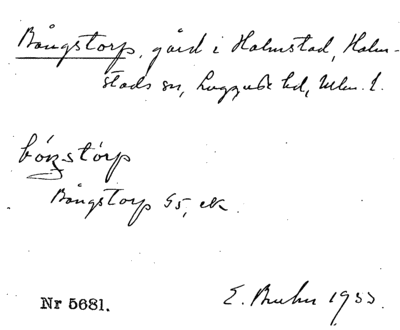 Bångstorp, gård i Halmstad, Halm-
stads sn, Luggude hd, Mlm. l.
bóŋstórp
Bångstorp G5, ek.
Nr 5681.
E. Bruhn 1933.